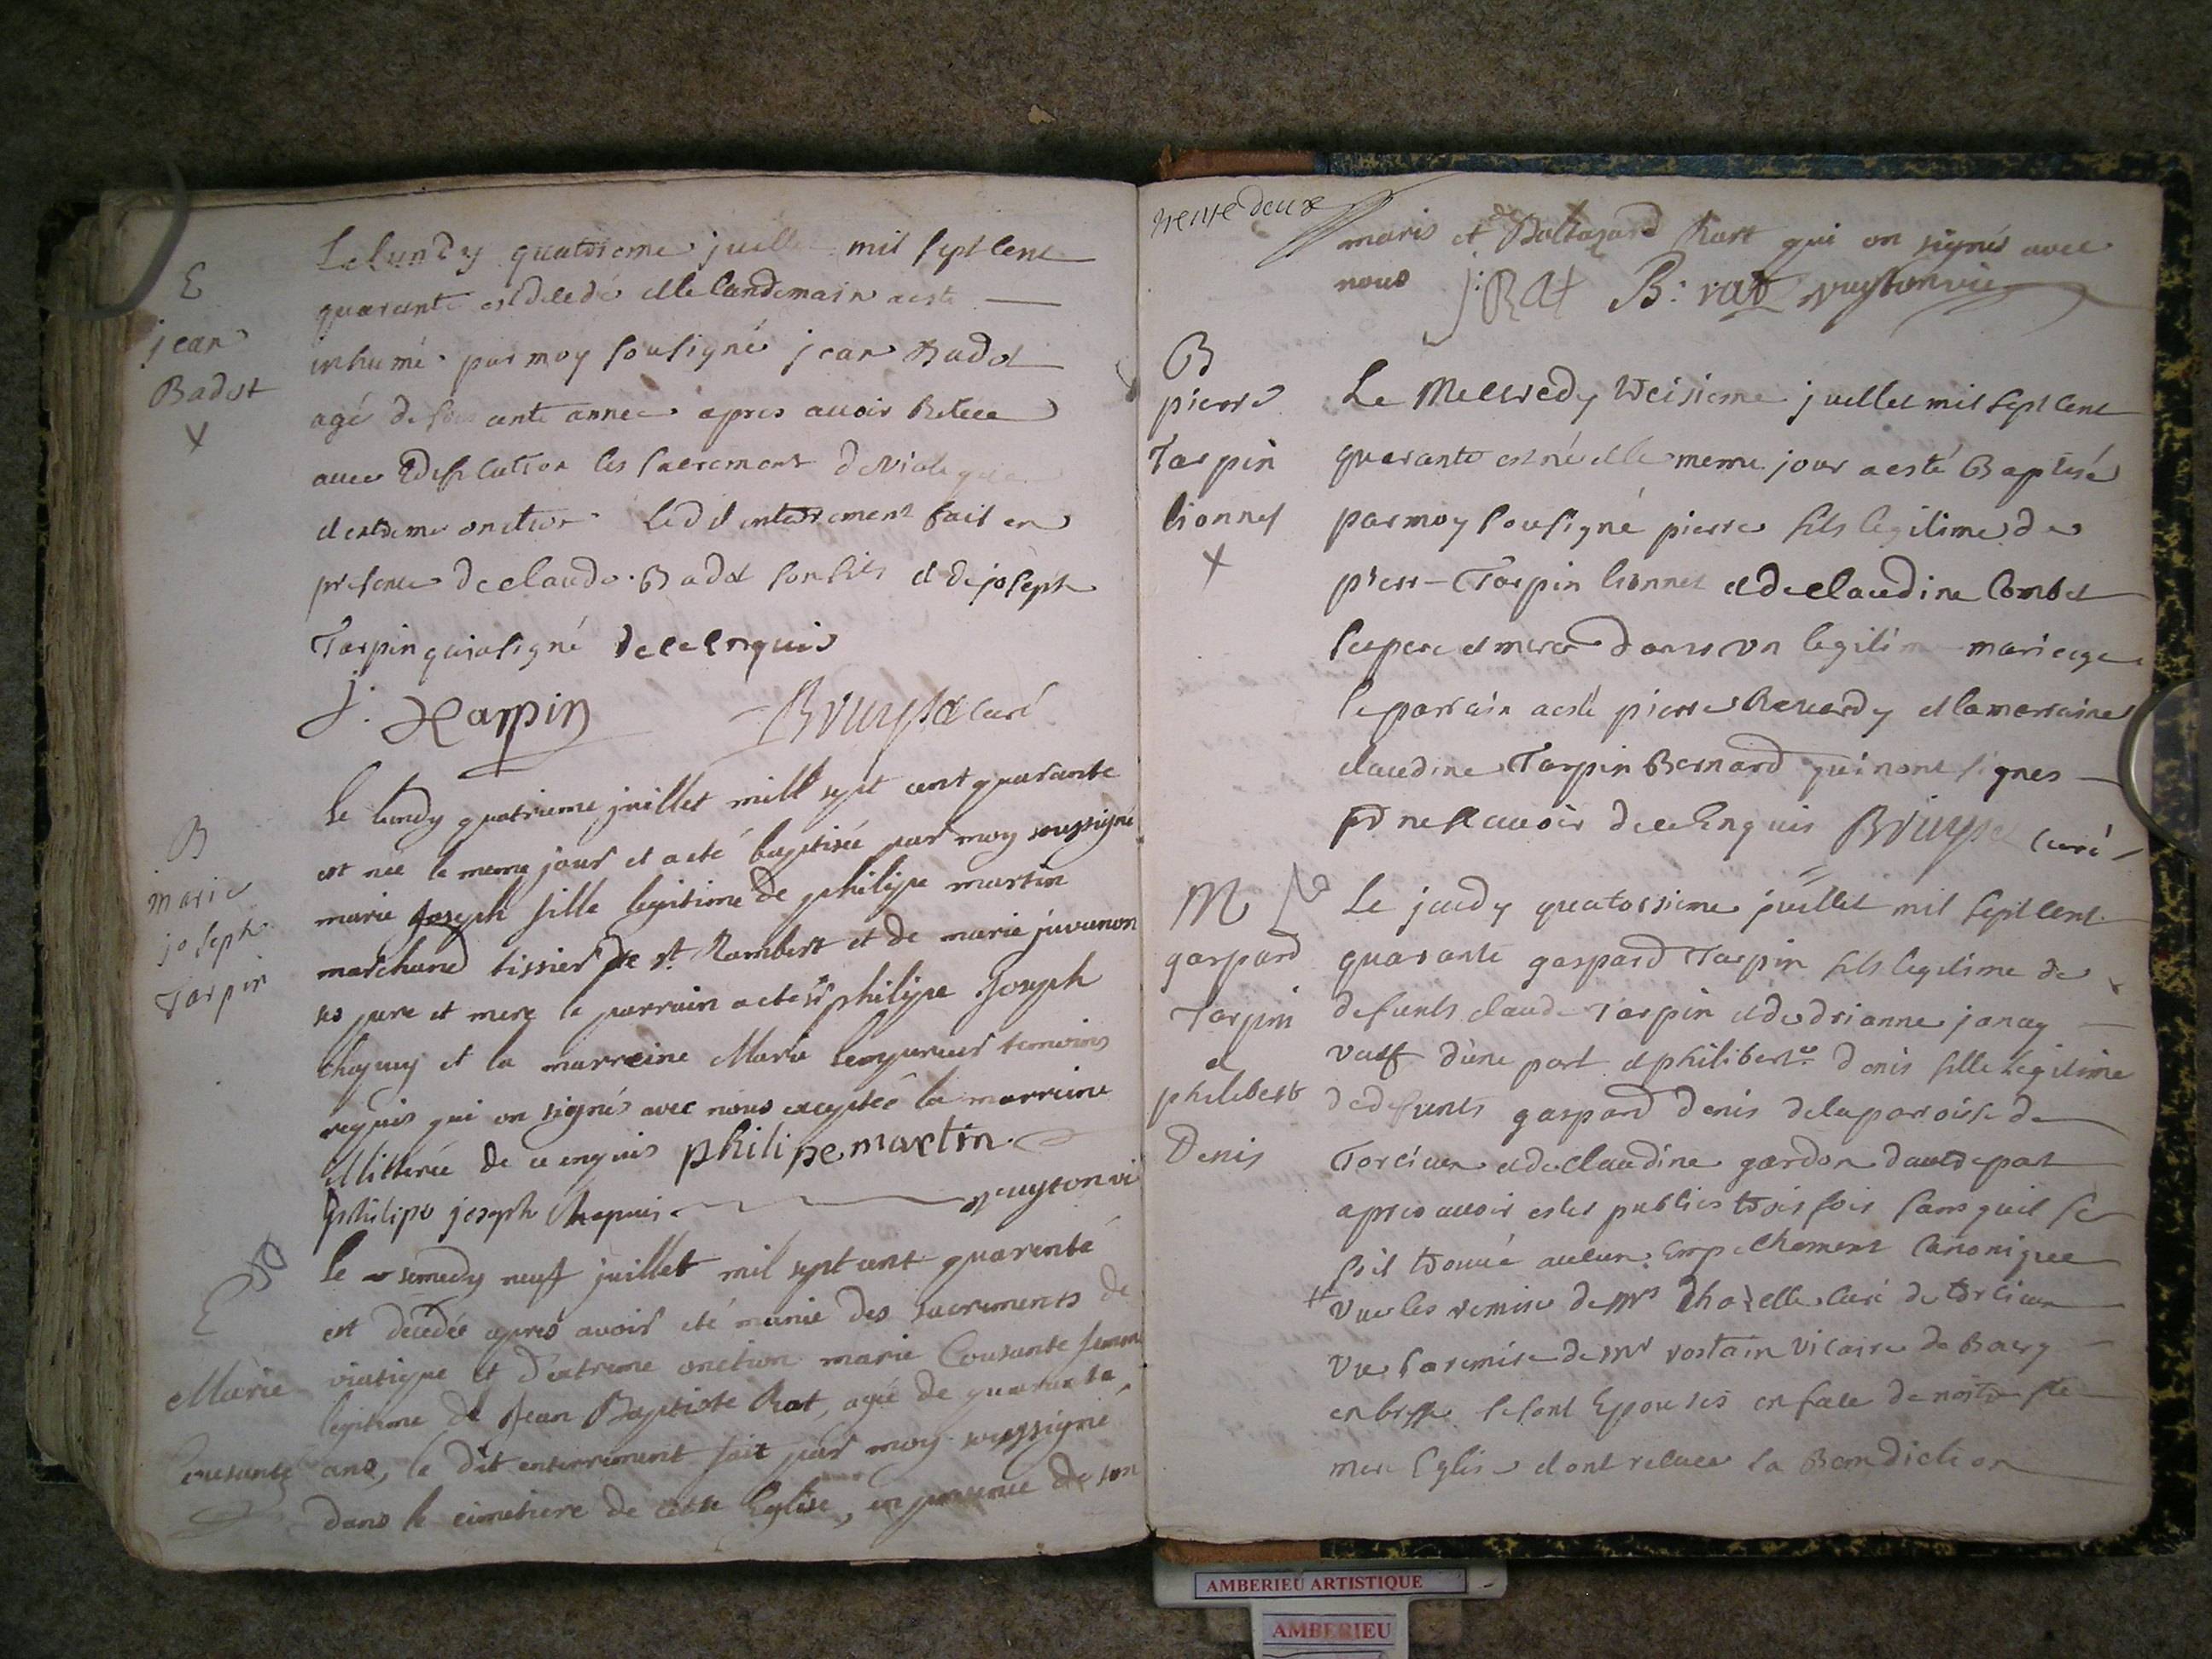 E
jean
Badot
Le lundy quatrieme juillet mil sept cent
quarante est decedé et le landemain a esté
inhumé par moy sousigné jean Badot
agé de soixante année apres avoir Receu
avec les sacrement de viatique
et extreme onction ledit enterrement fait en
presence de claude Badot son fils et de joseph
Tarpin qui a signé de ce enquis
j. tarpin Bruyset curé
B
marie
joseph
Tarpin
le lundy quatrieme juillet mill sept cent quarante
est née le meme jour et a eté baptisée par moy soussigné
marie joseph fille legitime de philipe martin
marchand tissier de st Rambert et de marie juvanon
ses pere et mere le parrain a eté sr philipe Joseph
chapuy et la marreine Marie lempereur temoins
requis qui on signés avec nous exceptée la marreine
illitterée de ce enquis philipe martin
philipe joseph Chapuis
E
Marie
Cousante
le semedy neuf juillet mil sept cent quarente
est decedée apres avoir eté munie des sacrements de
viatique et d'extreme onction marie Cousante femme
legitime de jean Baptiste Rat, agée de quarante
ans, le dit enterrement fait par moy soussigné
dans le cimetiere de cette Eglise, en presence de son
trente deux
maris et de Baltazard Ratt qui on signés avec
nous j: Rat B: rat
B
pierre
Tarpin
lionnet
Le Mecredy treisieme juillet mil sept cent
quarante est né et le meme jour a esté Baptisé
par moy sousigné pierre fils legitime de
pierr Tarpin lionnet et de claudine Combet
ses pere et mere dans un legitime mariage
le parrain a esté pierre Revardy et la marraine
claudine Tarpin Bernard qui n'ont signes
pr ne scavoir de ce Enquis Bruyset curé
M
gaspard
Tarpin
et
philiberte
Denis
Le jeudy quatorsieme juillet mil sept cent
quarante gaspard Tarpin fils legitime de
defunts claude Tarpin et de drianne janay
veuf d'une part et philiberte denis fille legitime
de defunts gaspard denis de la paroisse de
Torcieu et de claudine gardon d'autre part
apres avoir estes publies trois fois sans quil se
soit trouvé aucun Empechement Canonique
vue les remise de mrs dhozelle curé de torcieu
vue la remise de mr rostain vicaire de Bourg
en bresse se sont Epousés en face de nostre ste
mere Eglise et ont receu la Benediction
AMBERIEU ARTISTIQUE
AMBERIEU